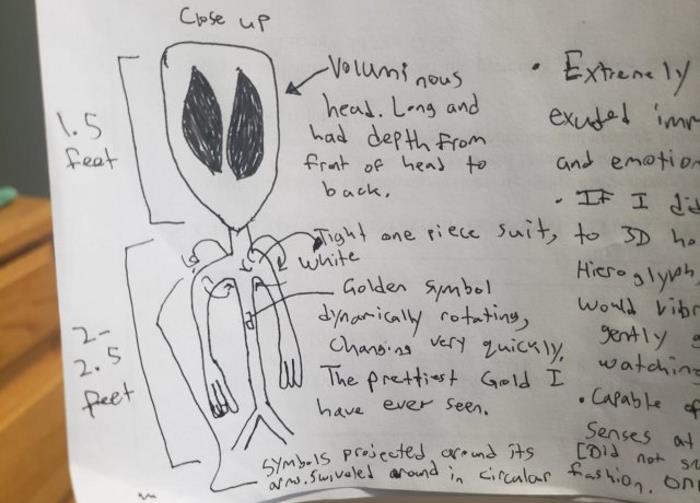 Close up
1.5
feet
Voluminous
head. Long and
had depth from
front of head to
back.
Tight one piece suit,
white
Golden symbol
dynamically rotating,
Changing very quickly.
The prettiest Gold I
have ever seen.
2-
2.5
feet
Symbols projected around its
arms. Swiveled around in circular fashion.
• Extremely
exuded
and
• If I
to 3D
Hieroglyph
would
gently
watching
• Capable of
Senses
[Did not